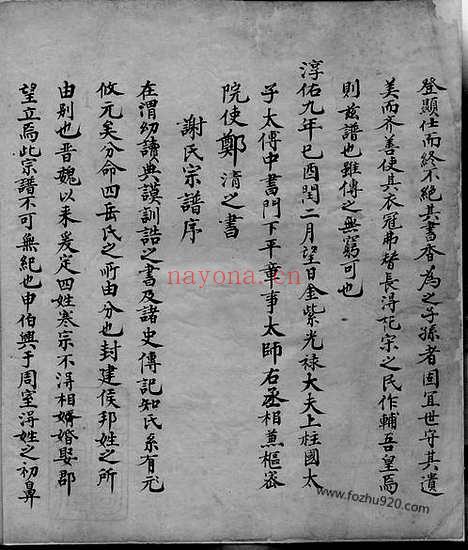 登顯仕而終不絕其書香為之子孫者固宜世守其遺
美而齐善使其衣冠弗替長淂花宋之民作輔吾皇焉
則玆譜也雖傳之無窮可也
淳佑九年己酉閏二月望日金紫光禄大夫上柱國太
子太傅中書門下平章事太師右丞相蕉樞宻
院使鄭清之書
謝氏宗譜序
在渭幼讀典謨訓誥之书及諸史傳記知氏系有
攸元矣分命四岳氏之所由分也封建侯邦姓之所
由别也晋魏以来爰定四姓寒宗不淂相婿婚娶郡
望立焉此宗譜不可無紀也申伯興于周室淂姓之初鼻
nayona.cn
www.fozhu920.com